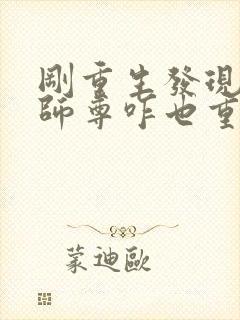 剛重生發現
師尊咋也重
蒙迪歐